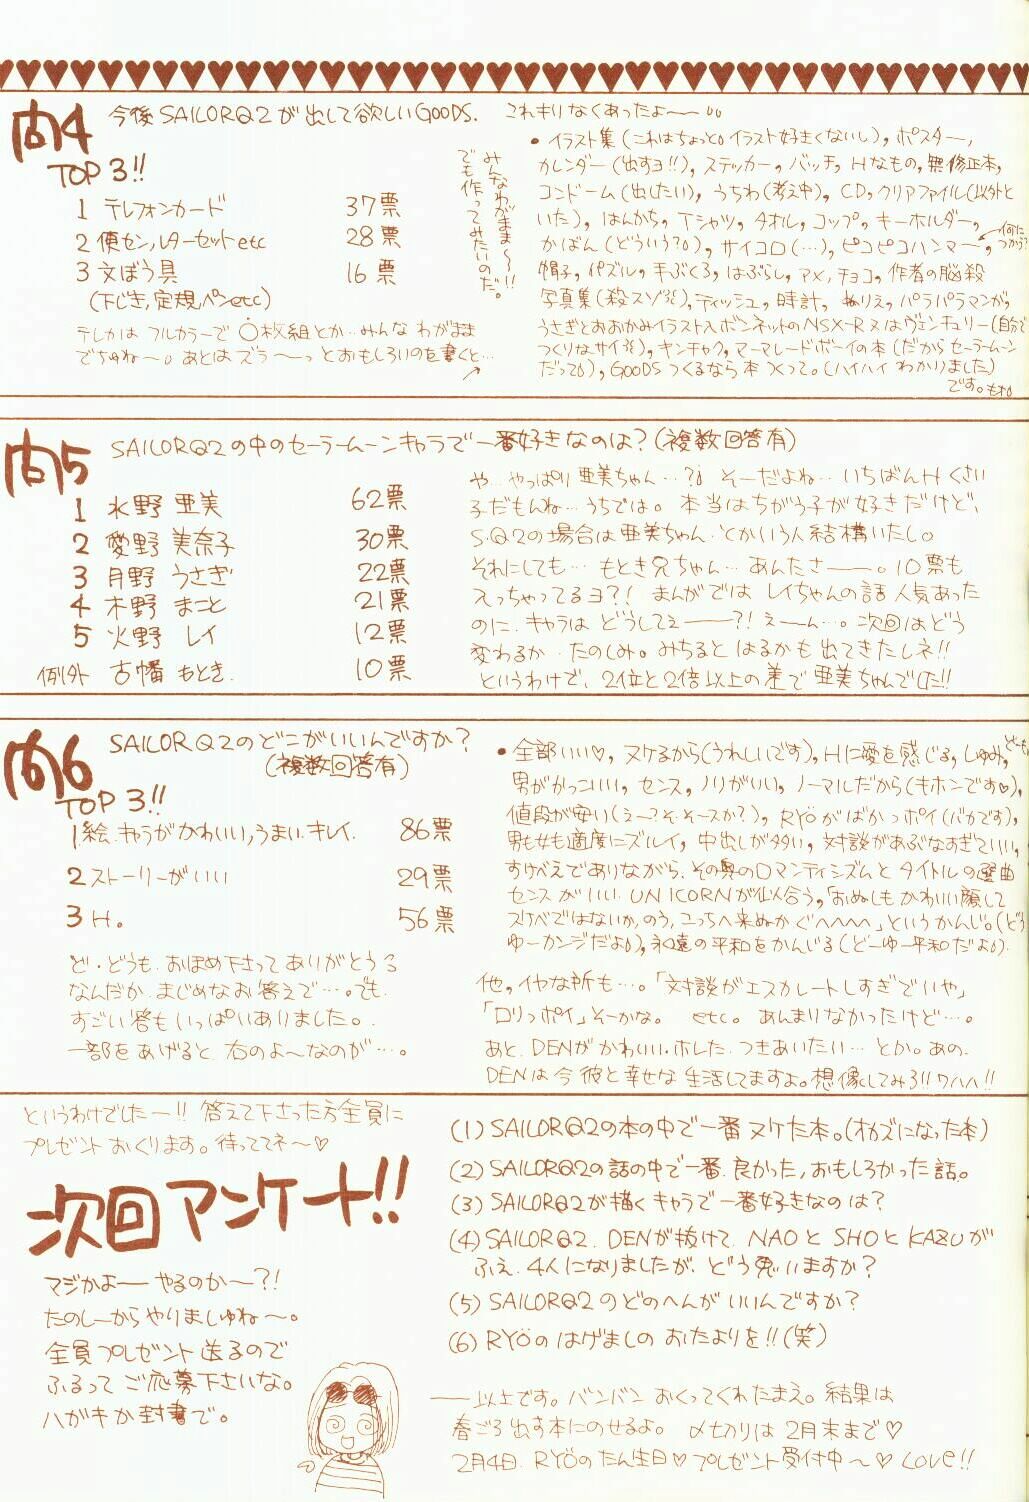 問4 今後SAILORQ2が出して欲しいGOODS.
TOP 3!!
1 テレフォンカード 37票
2 便セン,レターセットetc 28票
3 文ぼう具 16票
(下じき,定規,ペンetc)
みんなわがまま〜!!
でも作ってみたいのだ。
テレカは フルカラーで ○枚組とか…みんな わがまま
でちゅね〜。あとは ズラ〜〜っと おもしろいのを書くと…
これきりなくあったよ〜〜
• イラスト集(これはちょっと。イラスト好きくないし), ポスター,
カレンダー(出すヨ!!), ステッカー, バッチ, Hなもの, 無修正本,
コンドーム(出したい), うちわ(考え中), CD, クリアファイル(以外と
いた), はんかち, Tシャツ, タオル, コップ, キーホルダー,
かばん(どういう?), サイコロ(…), ピコピコハンマー, ←何に
つかう?
帽子, パズル, 手ぶくろ, はぶらし, アメ, チョコ, 作者の脳殺
写真集(殺スゾ), ティッシュ, 時計, ぬりえ, パラパラマンガ,
うさぎとおおかみイラスト入ボンネットのNSX-R又はヴェンチュリー(自分で
つくりなサイ), キンチャク, マーマレードボーイの本(だからセーラームーン
だって), GOODSつくるなら本つくって。(ハイハイ わかりました)
です。
問5 SAILORQ2の中のセーラームーンキャラで一番好きなのは?(複数回答有)
1 水野 亜美 62票
2 愛野 美奈子 30票
3 月野 うさぎ 22票
4 木野 まこと 21票
5 火野 レイ 12票
例外 古幡 もとき. 10票
や…やっぱり 亜美ちゃん…?! そーだよね… いちばん Hくさい
子だもんね… うちでは。本当はちがう子が好きだけど,
S.Q2の場合は亜美ちゃん. とかいう人 結構いたし。
それにしても… もとき兄ちゃん… あんたさ——。10票も
入っちゃってるヨ?! まんがでは レイちゃんの話 人気あった
のに. キャラは どうしてえ——?! え—ん…。次回は どう
変わるか. たのしみ。みちると はるかも 出てきたしネ!!
というわけで, 2位と2倍以上の差で 亜美ちゃんでした!!
問6 SAILORQ2のどこがいいんですか?
(複数回答有)
TOP 3!!
1.絵.キャラがかわいい,うまい.キレイ. 86票
2 ストーリーがいい 29票
3 H。 56票
ど・どうも. おほめ下さって ありがとう
なんだか. まじめな お答えで…。でも.
すごい答も いっぱいありました。
一部を あげると 右のよ〜なのが…。
• 全部いい♡, ヌケるから(うれしいです), Hに愛を感じる, しゅみ,
男がかっこいい, センス, ノリがいい, ノーマルだから(キホンです♡),
値段が安い(え〜?そ.そースか?), RYÖがばかっポイ(バカです),
男も女も適度にズルイ, 中出しが多い, 対談があぶなすぎていい,
すけべえでありながら, その奥のロマンティシズムと タイトルの選曲
センスがいい. UNICORNが似合う,「おぬしも かわいい顔して
スケベではないか,のう, こっちへ来ぬか ぐへへへへ」というかんじ。(どう
ゆーカンジだよ), 永遠の平和をかんじる(どーゆー平和だよ).
他, イヤな所も…。「対談がエスカレートしすぎでいや」
「ロリっポイ」そーかな。 etc。あんまりなかったけど…。
あと. DENがかわいい. ホレた. つきあいたい… とか。あの.
DENは今 彼と幸せな 生活してますよ。想像してみろ!! ワハハ!!
というわけでした〜!! 答えて下さった方全員に
プレゼント おくります。待っててネ〜♡
次回アンケート!!
マジかよ—— やるのか〜?!
たのしーからやりましゅね〜。
全員プレゼント 送るので
ふるって ご応募下さいな。
ハガキか封書で。
(1) SAILORQ2の本の中で一番 ヌケた本。(オカズになった本)
(2) SAILORQ2の話の中で一番. 良かった, おもしろかった話。
(3) SAILORQ2が描くキャラで一番好きなのは?
(4) SAILORQ2. DENが抜けて. NAOとSHOとKAZUが
ふえ. 4人になりましたが. どう思いますか?
(5) SAILORQ2のどのへんが いいんですか?
(6) RYÖの はげましの おたよりを!!(笑)
——以上です。バンバン おくってくれたまえ。結果は
春ごろ出す本にのせるよ。〆切りは 2月末まで♡
2月4日. RYÖのたん生日♡プレゼント受付中〜♡ LOVE!!